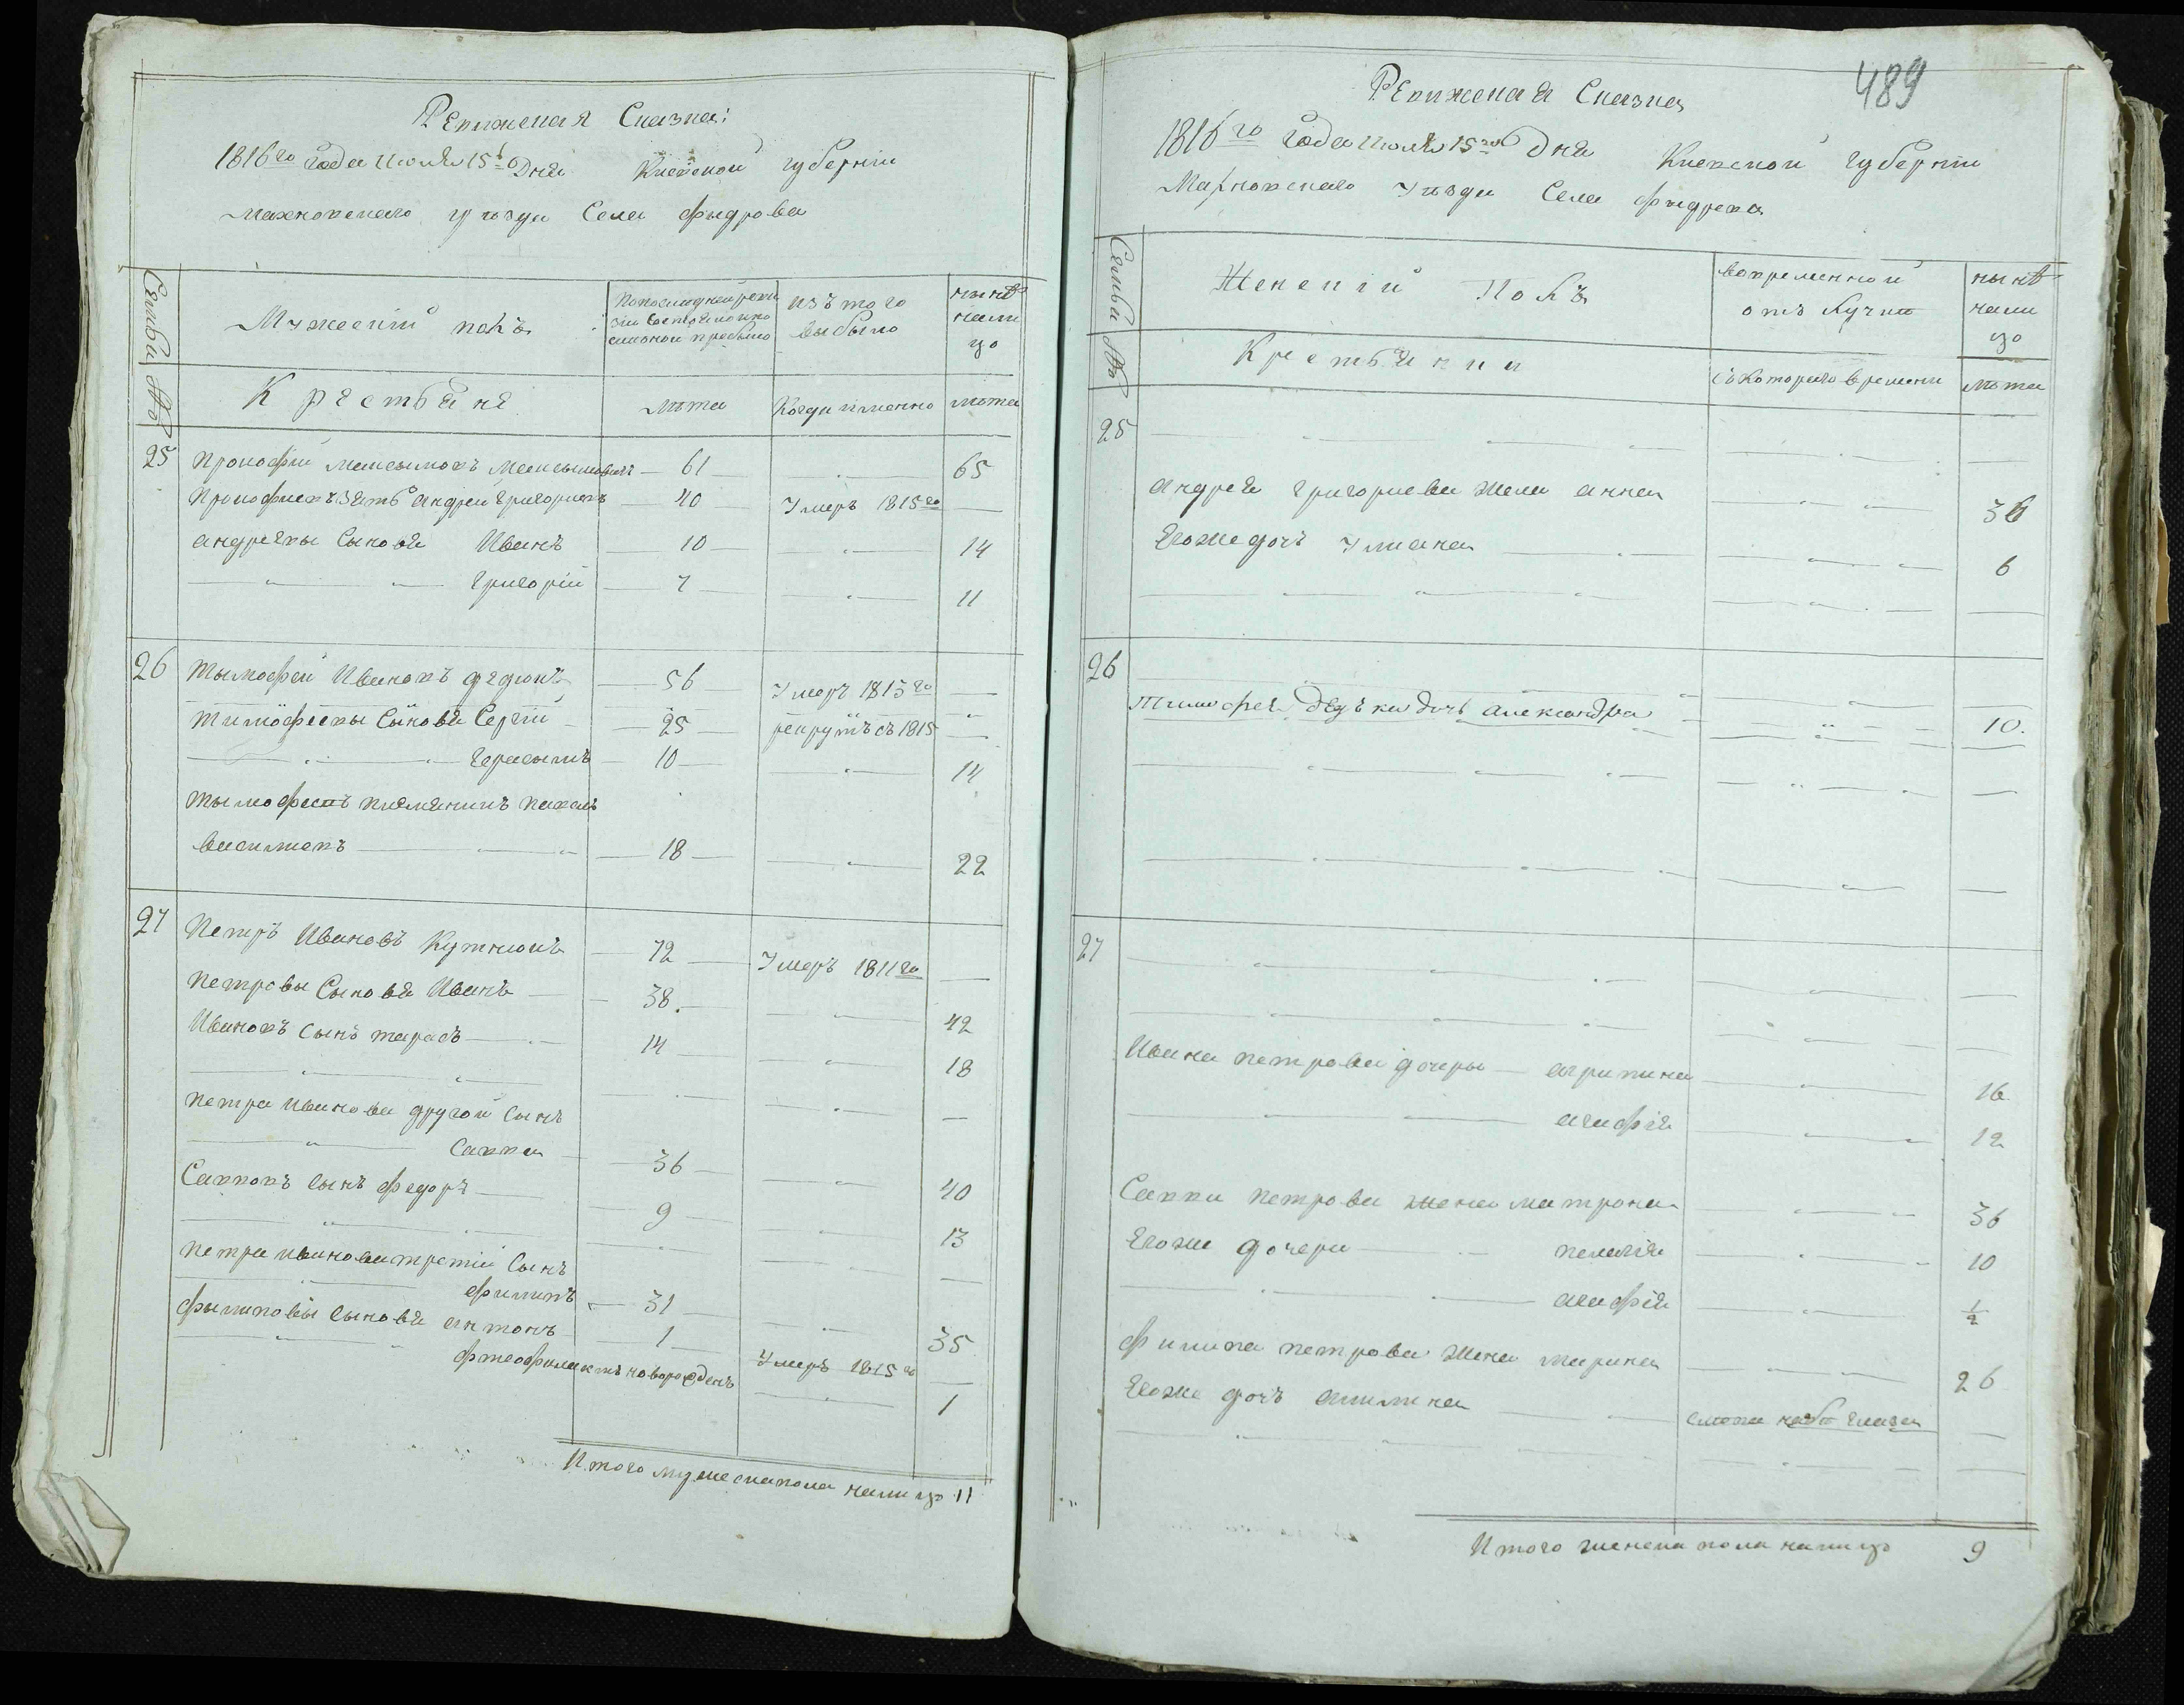 Ревижская Сказка:
1816го года Июля 15го Дня Киевской губернии
Махновского уѣзда Села Фыдрова
Семьи №
Мужеский полъ
По последней ревизии состояло и после оной прибыло
изъ того выбыло
нынѣ на лицо
Крестьяне
лѣта
Когда именно
лѣта
25
Прокофій Максымовъ Максымовичъ — 61 — 65
Прокофиевъ Зять андрей Григориевъ — 40 — Умеръ 1815го —
андреевы Сыновя Иванъ — 10 — 14
Григорій — 7 — 11
26
Тымофей Ивановъ — 56 — Умеръ 1813го —
Тимофеевы Сыновя Сергій — 25 — рекрутъ съ 1815 —
Герасымъ — 10 — 14
Тымофеевъ племяникъ Павелъ
Василиевъ — 18 — 22
27
Петръ Ивановъ — 72 — Умеръ 1811го —
Петровы Сыновя Иванъ — 38 — 42
Ивановъ Сынъ тарасъ — 14 — 18
Петра Иванова другой Сынъ
Савва — 36 — 40
Саввовъ Сынъ Федоръ — 9 — 13
Петра Иванова третій Сынъ
Филипъ — 31 — 35
Фылиповы Сыновя антонъ — 1 — Умеръ 1815го —
Фтеофилактъ новорожденъ — 1
Итого мужеска пола налицо 11
489
Ревижская Сказка
1816го года Июля 15го Дня Киевской Губернии
Махновского Уѣзда Села Фыдрова
Семьи №
Женский Полъ
Во временной отлучки
нынѣ на лицо
Крестьянки
съ Которого времени
лѣта
25
андрея григориева жена анна — 36
Егоже дочъ Улиана — 6
26
Тимофея дочъ александра — 10.
27
Ивана петрова дочеры — агрипина — 16
агафія — 12
Саввы петрова жена матрона — 36
Егоже дочери — пелагія — 10
агафія — 1/2
Филипа петрова жена марина — 26
Егоже дочъ акилина — слепа на глаза —
Итого женска пола налицо 9